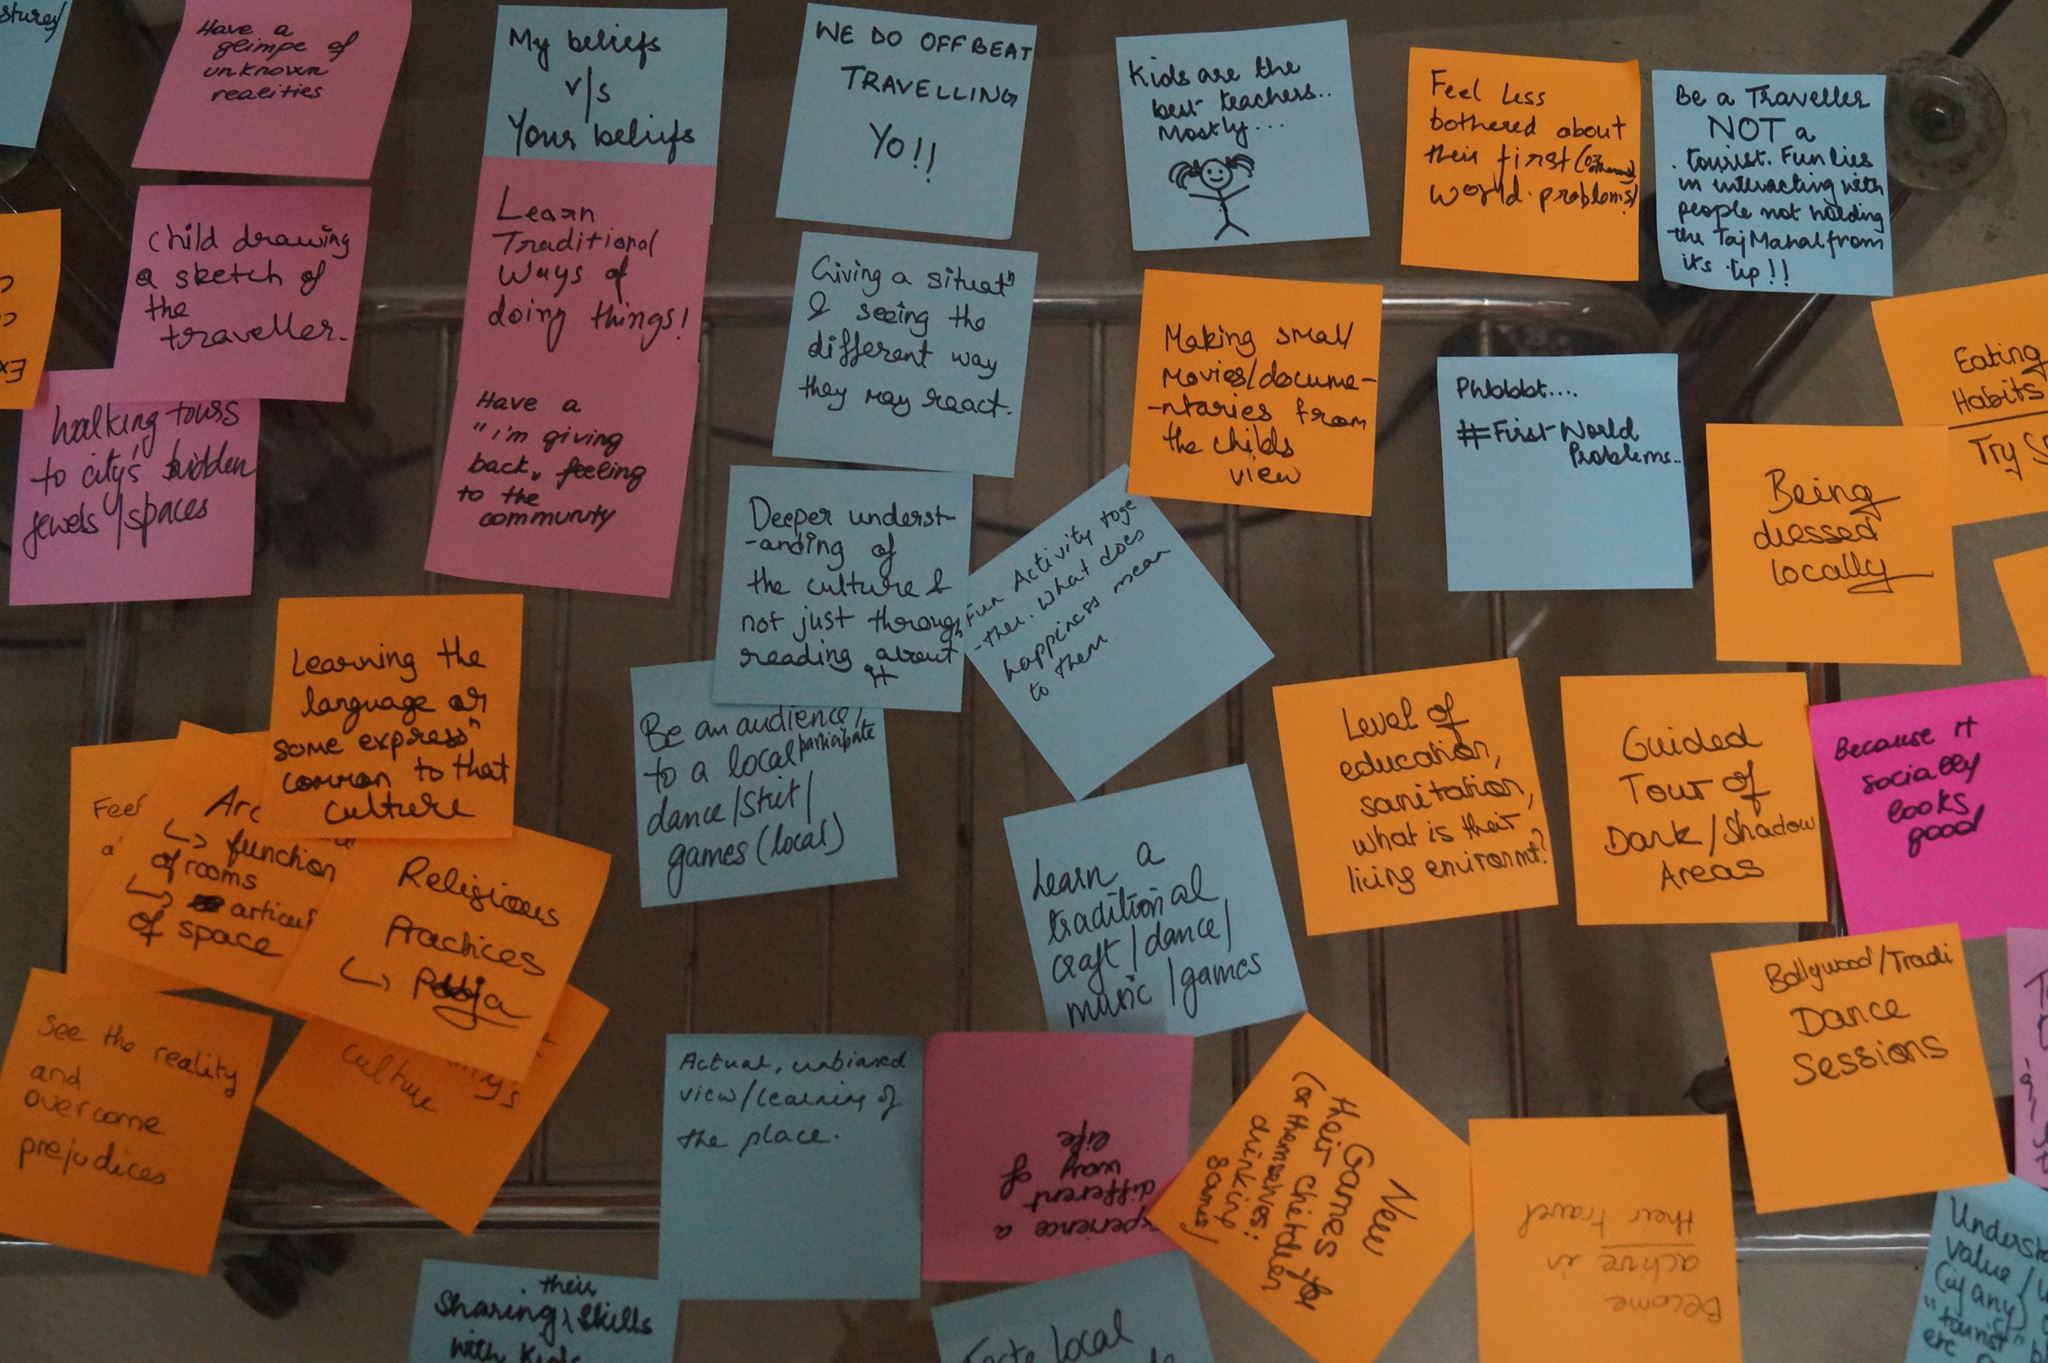 Have a
glimpe of
unknown
realities
My beliefs
v/s
Your beliefs
WE DO OFFBEAT
TRAVELLING
YO!!
Kids are the
best teachers..
Mostly...
Feel less
bothered about
their first
world problems!
Be a Traveller
NOT a
tourist. Fun lies
in interacting with
people not holding
the Taj Mahal from
its tip!!
Child drawing
a sketch of
the
traveller.
Learn
Traditional
Ways of
doing things!
Giving a situatn
& seeing the
different way
they may react.
Making small
movies/docume-
-ntaries from
the childs
view
Phbbbbt....
#First World
Problems..
Eating
Habits
Try
Walking tours
to city's hidden
jewels/spaces
Have a
"i'm giving
back" feeling
to the
community
Deeper underst-
-anding of
the culture &
not just through
reading about
it
Fun Activity toge
-ther. What does
happiness mean
to them
Being
dressed
locally
Learning the
language or
some expressn
common to that
culture
Be an audience/
participate
to a local
dance/skit/
games (local)
Level of
education,
sanitation,
what is their
living environmt?
Guided
Tour of
Dark/Shadow
Areas
Because it
socially
looks
good
Feel
Arc
↳ function
of rooms
↳ articul
of space
Religious
Practices
↳ Pooja
Learn a
traditional
craft/dance/
music/games
Bollywood/Tradi
Dance
Sessions
See the reality
and
overcome
prejudices
culture
Actual, unbiased
view/learning of
the place.
xperience a
different
way of
life
New
Games for
their children
(or themselves:
drinking
games)
Become
active in
their travel
their
Sharing skills
with kids
Taste local
Understa
value/
(of any)
"tourist"
etc